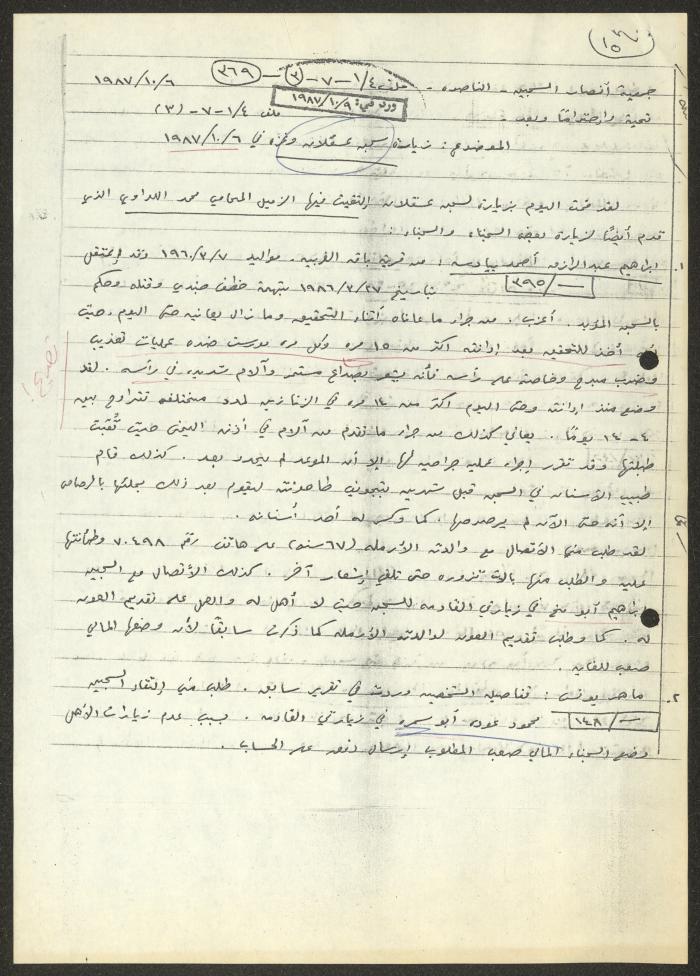 ١٥
جمعية أنصار السجين - الناصرة - ملف ١/٤-٧-(٣)-(٣٦٩) ١٩٨٧/١٠/٦
ورد في: ١٩٨٧/١٠/٩
تحية واحتراما وبعد، ملف ١/٤-٧-(٣)
الموضوع: زيارة سجن عسقلان وغزة في ١٩٨٧/١٠/٦
لقد قمت اليوم بزيارة لسجن عسقلان التقيت فيها الزميل المحامي محمد اللداوي الذي
قدم أيضًا لزيارة بعض السجناء والسجناء:
١. ابراهيم عبد الرازق أحمد بيادسة: من قرية باقة الغربية. مواليد ١٩٦٠/٣/٧ وقد إعتقل
٣٩٥/— بتاريخ ١٩٨٦/٣/٢٧ بتهمة خطف جندي وقتله وحكم
بالسجن المؤبد. أعزب. من جراء ما عاناه أثناء التحقيق وما زال يعانيه حتى اليوم، حيث
أنه أخذ للتحقيق بعد إدانته اكثر من ١٥ مرة وكل مرة مورست ضده عمليات تعذيب
وضرب مبرح وخاصة على رأسه فأنه يشعر بصداع مستمر وآلام شديدة في رأسه. لقد
وضع منذ إدانته وحتى اليوم اكثر من ١٤ مرة في الزنازين لمدد مختلفة تتراوح بين
٤-١٤ يومًا. يعاني كذلك من جراء ما تقدم من آلام في أذنه اليمنى حيث ثُقبت
طبلتها وقد تقرر إجراء عملية جراحية لها إلا أن الموعد لم يحدد بعد. كذلك قام
طبيب الأسنان في السجن قبل شهرين بتجويف طاحونته ليقوم بعد ذلك بملئها بالرصاص
إلا أنه حتى الآن لم يرصرصها، كما وكسر له أحد أسنانه.
لقد طلب مني الأتصال مع والدته الأرملة (٦٧ سنة) على هاتف رقم ٧٠٤٩٨ وطمأنتها
عليه والطلب منها بألا تزوره حتى تلقي إشعار آخر. كذلك الأتصال مع السجين
ابراهيم أبو مخ في زيارتي القادمة للسجن حيث لا أهل له والعمل على تقديم العون
له. كما وطلب تقديم العون لوالدته الأرملة كما ذكرت سابقًا لأن وضعها المالي
صعب للغاية.
٢. ماهر يونس: تفاصيله الشخصية وردت في تقرير سابق. طلب مني إلتقاء السجين
١٤٨/— محمود عوده أبو سمرة في زيارتي القادمة. بسبب عدم زيارات الأهل
وضع السجناء المالي صعب المطلوب إرسال نقود على الحساب.